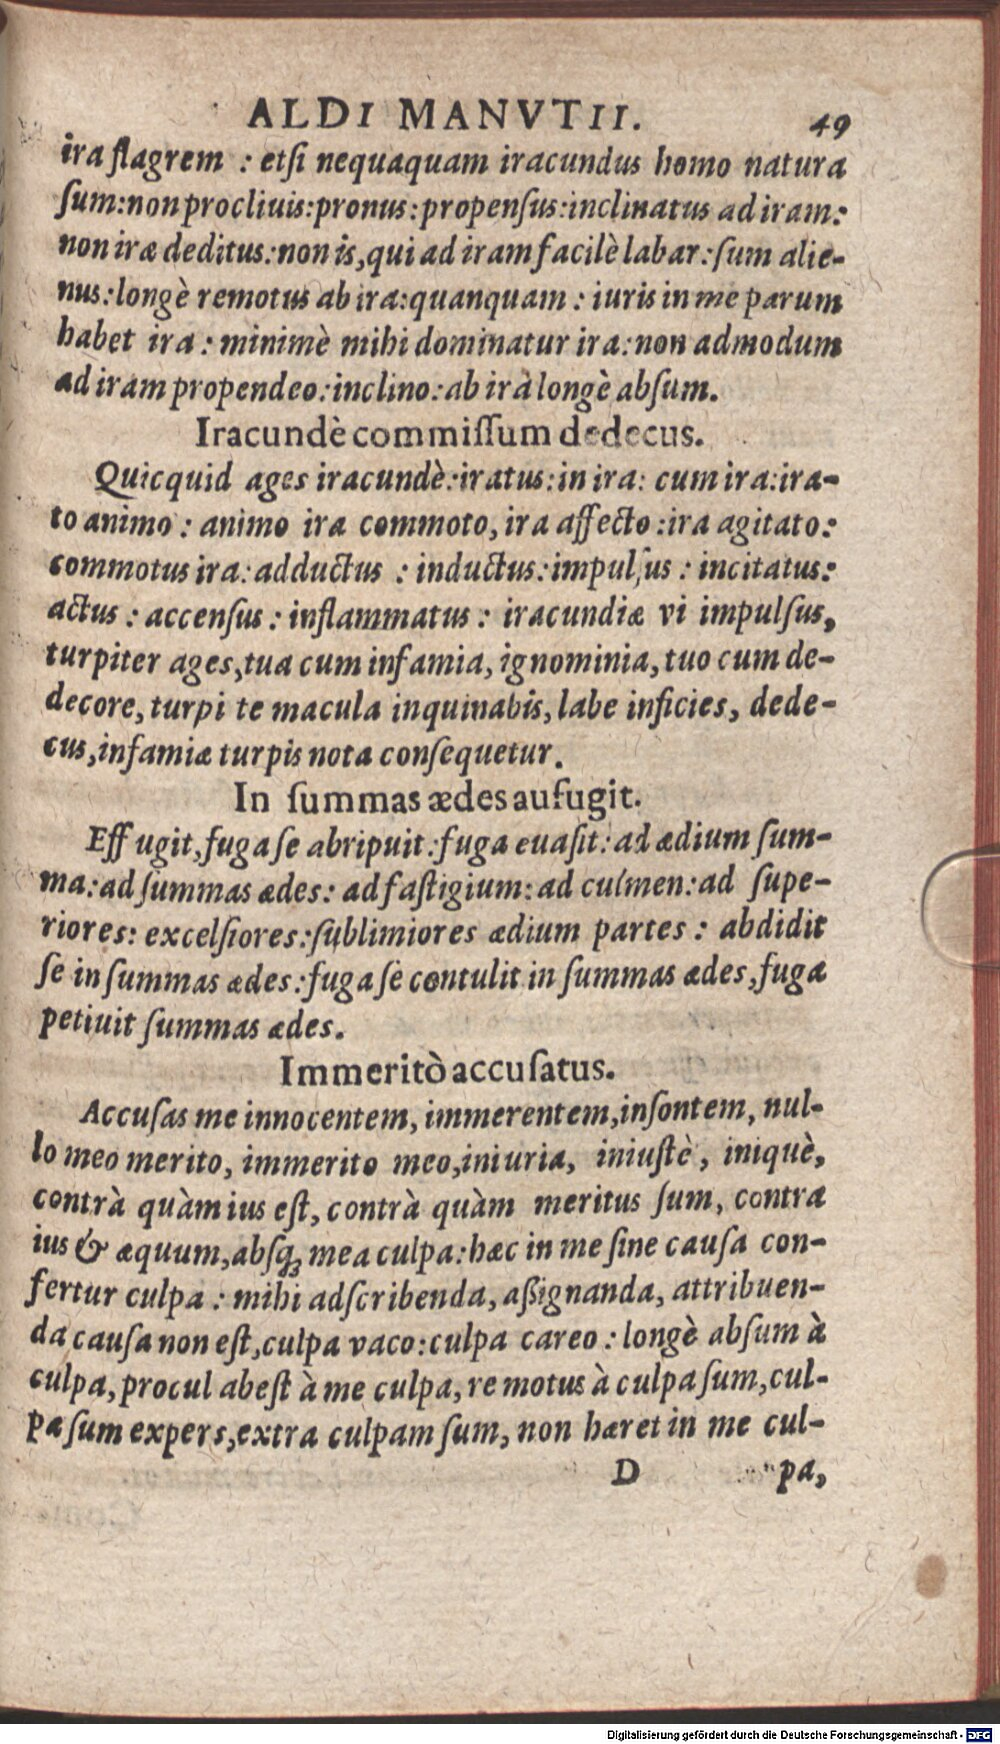 ALDI MANVTII. 49
ira flagrem : etſi nequaquam iracundus homo natura
ſum:non procliuis:pronus:propenſus:inclinatus ad iram:
non iræ deditus:non is,qui ad iram facilè labar:ſum alie-
nus:longè remotus ab ira:quanquam : iuris in me parum
habet ira : minimè mihi dominatur ira:non admodum
ad iram propendeo:inclino:ab irà longè abſum.
Iracundè commiſſum dedecus.
Quicquid ages iracundè:iratus:in ira: cum ira:ira-
to animo : animo ira commoto, ira affecto :ira agitato:
commotus ira:adductus : inductus:impulſus : incitatus:
actus : accenſus : inflammatus : iracundiæ vi impulſus,
turpiter ages,tua cum infamia, ignominia, tuo cum de-
decore, turpi te macula inquinabis, labe inficies, dede-
cus,infamiæ turpis nota conſequetur.
In ſummas ædes aufugit.
Effugit,fuga ſe abripuit:fuga euaſit:ad ædium ſum-
ma:ad ſummas ædes: ad faſtigium:ad culmen:ad ſupe-
riores: excelſiores:ſublimiores ædium partes : abdidit
ſe in ſummas ædes:fuga ſe contulit in ſummas ædes,fuga
petiuit ſummas ædes.
Immeritò accuſatus.
Accuſas me innocentem, immerentem,inſontem, nul-
lo meo merito, immerito meo,iniuria, iniuſtè, iniquè,
contrà quàm ius eſt, contrà quàm meritus ſum, contra
ius & æquum,abſq; mea culpa:hæc in me ſine cauſa con-
fertur culpa : mihi adſcribenda, aßignanda, attribuen-
da cauſa non eſt,culpa vaco:culpa careo : longè abſum à
culpa, procul abeſt à me culpa, remotus à culpa ſum,cul-
pa ſum expers,extra culpam ſum, non hæret in me cul-
D pa,
Digitalisierung gefördert durch die Deutsche Forschungsgemeinschaft - DFG